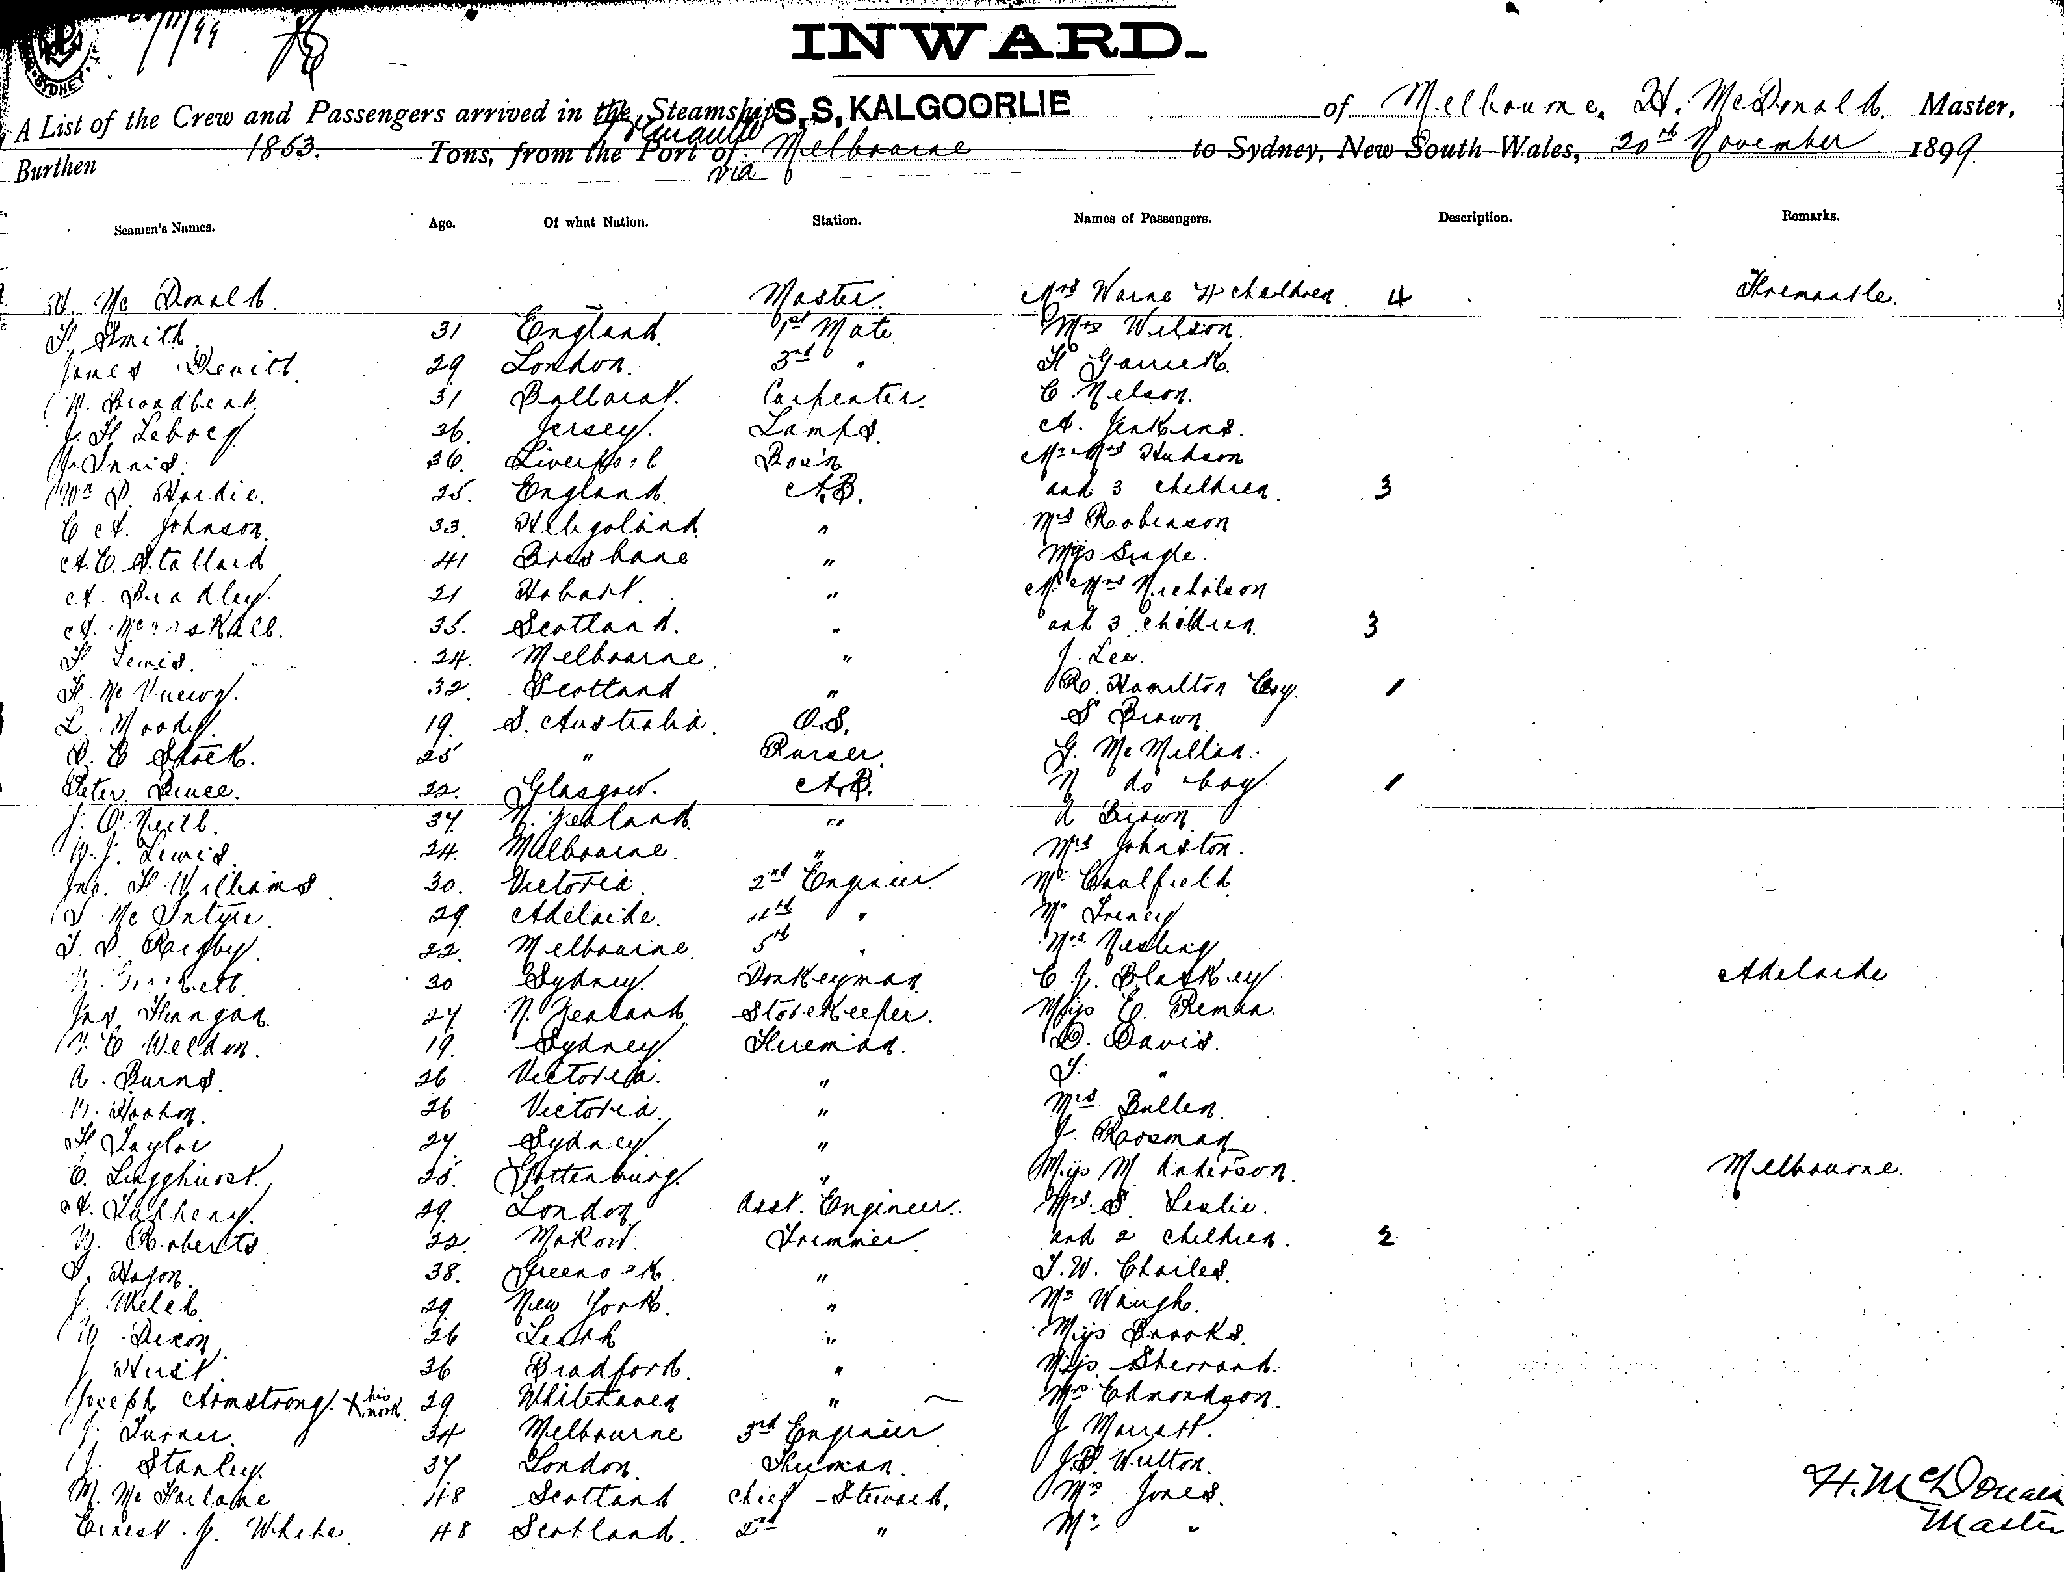 20/11/99
SYDNEY
INWARD.
A List of the Crew and Passengers arrived in the Steamship S.S. KALGOORLIE of Melbourne, H. McDonald, Master,
Fremantle
Burthen 1853. Tons, from the Port of Melbourne to Sydney, New South Wales, 20th November 1899.
via
Seamen's Names. Age. Of what Nation. Station. Names of Passengers. Description. Remarks.
H. McDonald. Master. Mrs Warne 4 children 4 Fremantle.
H Smith 31 England. 1st Mate Mrs Wilson.
James Devitt. 29 London. 3rd " H Garrick.
W. Broadbent 31 Ballarat. Carpenter. C. Nelson.
J. H Leboey. 36. Jersey. Lamps. A. Jenkins.
J. Innis. 36. Liverpool Bos'n Mr Mrs Hudson
Wm D. Hardie. 25. England. A.B. and 3 children. 3
C A. Johnson. 33. Heligoland. " Mrs Robinson
A.C. Stallard 41 Brisbane " Miss
A. Bradley. 21 Hobart. " Mr Mrs Nicholson
A. Marskall. 35. Scotland. " and 3 children. 3
H Lewis. 24. Melbourne. " J. Lee.
H. Mc 32. Scotland " R. Hamilton boy. 1
L. Moody. 19. S. Australia. O.S. S Brown
D. C Stock. 25 " Purser. G. McMillan.
Peter Bruce. 22. Glasgow. A.B. N do boy 1
J. O'Neill. 37 N. Zealand. " A Brown
W. J. Lewis. 24. Melbourne. " Mrs Johnston.
Jno. H Williams 30. Victoria. 2nd Engineer. Mr Caulfield.
J McIntyre. 29. Adelaide. 4th " Mr
T. D. Rigby. 22. Melbourne. 5th " Mrs
W. 30 Sydney. Donkeyman C J. Blackey Adelaide
Jas Flanagan 27 N. Zealand. Storekeeper. Miss E.
F. C Weldon. 19. Sydney. Fireman. D. Davis.
A. Burns. 26 Victoria. " J. "
W. 26 Victoria. " Mrs Bullen.
H Taylor 27 Sydney. " J. Rosman
C. Lingghurst. 25. Gottenburg. " Miss M Anderson. Melbourne.
A. 29. London Asst. Engineer. Mrs. S. Leslie.
W. Roberts 22. Trimmer. and 2 children. 2
J. Hagon. 38. Greenock. " J. W. Charles.
J. Welch. 29. New York. " Mr Waugh.
W Dixon 26 Leith " Miss Brooks.
J Hurst. 36 Bradford. " Miss Sherrard.
Joseph Armstrong. X his mark. 29 Whitehaven " Mrs Edmondson.
J. Turner. 34 Melbourne 3rd Engineer J Marratt.
J. Stanley. 37 London. Fireman. J.B. Wilton.
M. McFarlane 48 Scotland Chief Steward. Mr Jones. H. McDonald
Ernest J. White. 48 Scotland. 2nd " Mr " Master